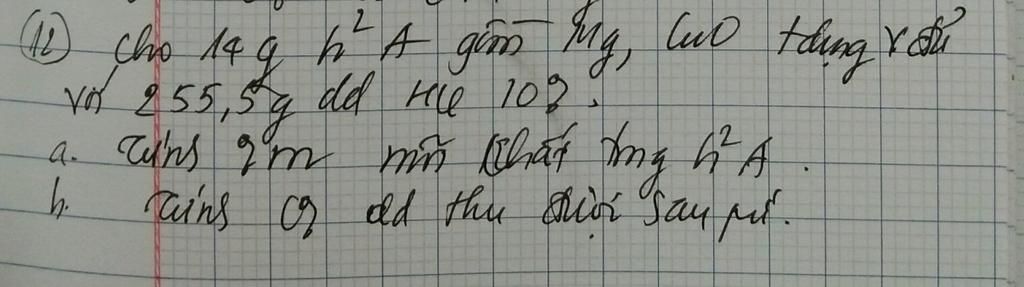 (12) Cho 14 g h² A gồm Mg, CuO t dụng v đủ
với 255,5g dd HCl 10%.
a. Tính %m mỗi chất trong h² A.
b. Tính C% dd thu được sau pứ.